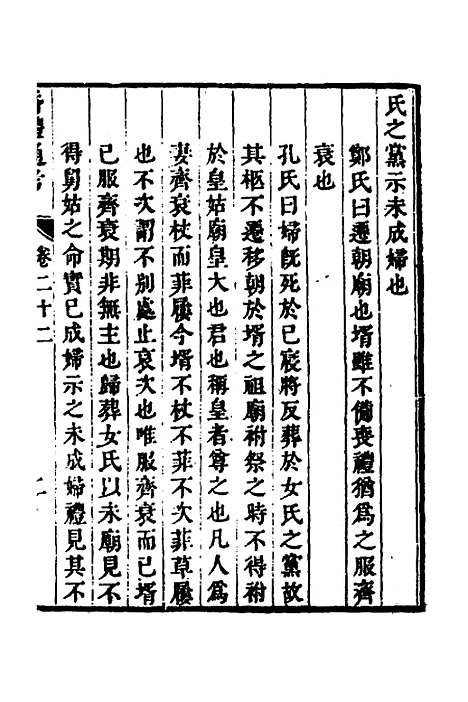 氏之黨示未成婦也
鄭氏曰遷朝廟也壻雖不備喪禮猶爲之服齊
衰也
孔氏曰婦既死於己寢將反葬於女氏之黨故
其柩不遷移朝於壻之祖廟祔祭之時不得祔
於皇姑廟皇大也君也稱皇者尊之也凡人爲
妻齊衰杖而菲屨今壻不杖不菲不次菲草屨
也不次謂不别處止哀次也唯服齊衰而已壻
已服齊衰期非無主也歸葬女氏以未廟見不
得舅姑之命實已成婦示之未成婦禮見其不
卷二十二